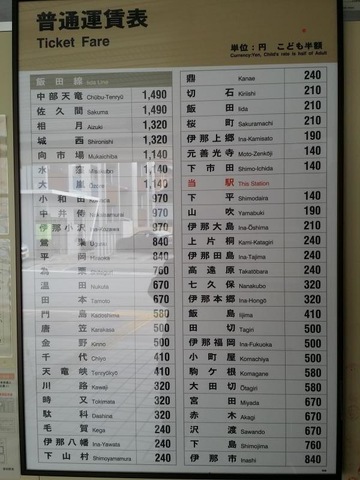 普通運賃表
Ticket Fare
単位：円 こども半額
Currency:Yen, Child's rate is half of Adult
飯田線 Iida Line
中部天竜 Chūbu-Tenryū 1,490
佐久間 Sakuma 1,490
相月 Aizuki 1,320
城西 Shironishi 1,320
向市場 Mukaichiba 1,140
水窪 Misakubo 1,140
大嵐 Ōzore 1,140
小和田 Kowada 970
中井侍 Nakaisamurai 970
伊那小沢 Ina-Kozawa 970
鶯巣 Ugusu 840
平岡 Hiraoka 840
為栗 760
温田 Nukuta 670
田本 Tamoto 670
門島 Kadoshima 580
唐笠 Karakasa 580
金野 Kinno 500
千代 Chiyo 410
天竜峡 Tenryūkyō 410
川路 Kawaji 320
時又 Tokimata 320
駄科 Dashina 320
毛賀 Kega 240
伊那八幡 Ina-Yawata 240
下山村 Shimoyamamura 240
鼎 Kanae 240
切石 Kiriishi 210
飯田 Iida 210
桜町 Sakuramachi 210
伊那上郷 Ina-Kamisato 190
元善光寺 Moto-Zenkōji 140
下市田 Shimo-Ichida 140
当駅 This Station
下平 Shimodaira 140
山吹 Yamabuki 190
伊那大島 Ina-Ōshima 210
上片桐 Kami-Katagiri 240
伊那田島 Ina-Tajima 240
高遠原 Takatōbara 240
七久保 Nanakubo 320
伊那本郷 Ina-Hongō 320
飯島 Iijima 410
田切 Tagiri 500
伊那福岡 Ina-Fukuoka 500
小町屋 Komachiya 500
駒ケ根 Komagane 580
大田切 Ōtagiri 580
宮田 Miyada 670
赤木 Akagi 670
沢渡 Sawando 670
下島 Shimojima 760
伊那市 Inashi 840